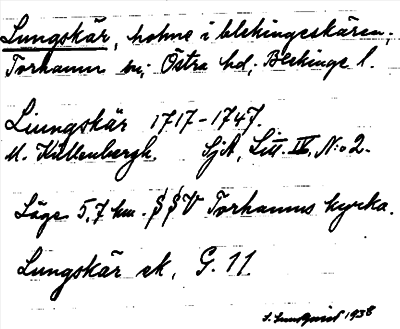 Lungskär, holme i blekingeskären,
Torhamn sn, Östra hd, Blekinge l.
Liungskär 1717-1747.
M. Källenbergh. SjA, Litt. IV, N:o 2.
Läge 5,7 km. SSV Torhamns kyrka.
Lungskär ek, G. 11.
S. Lundqvist 1938